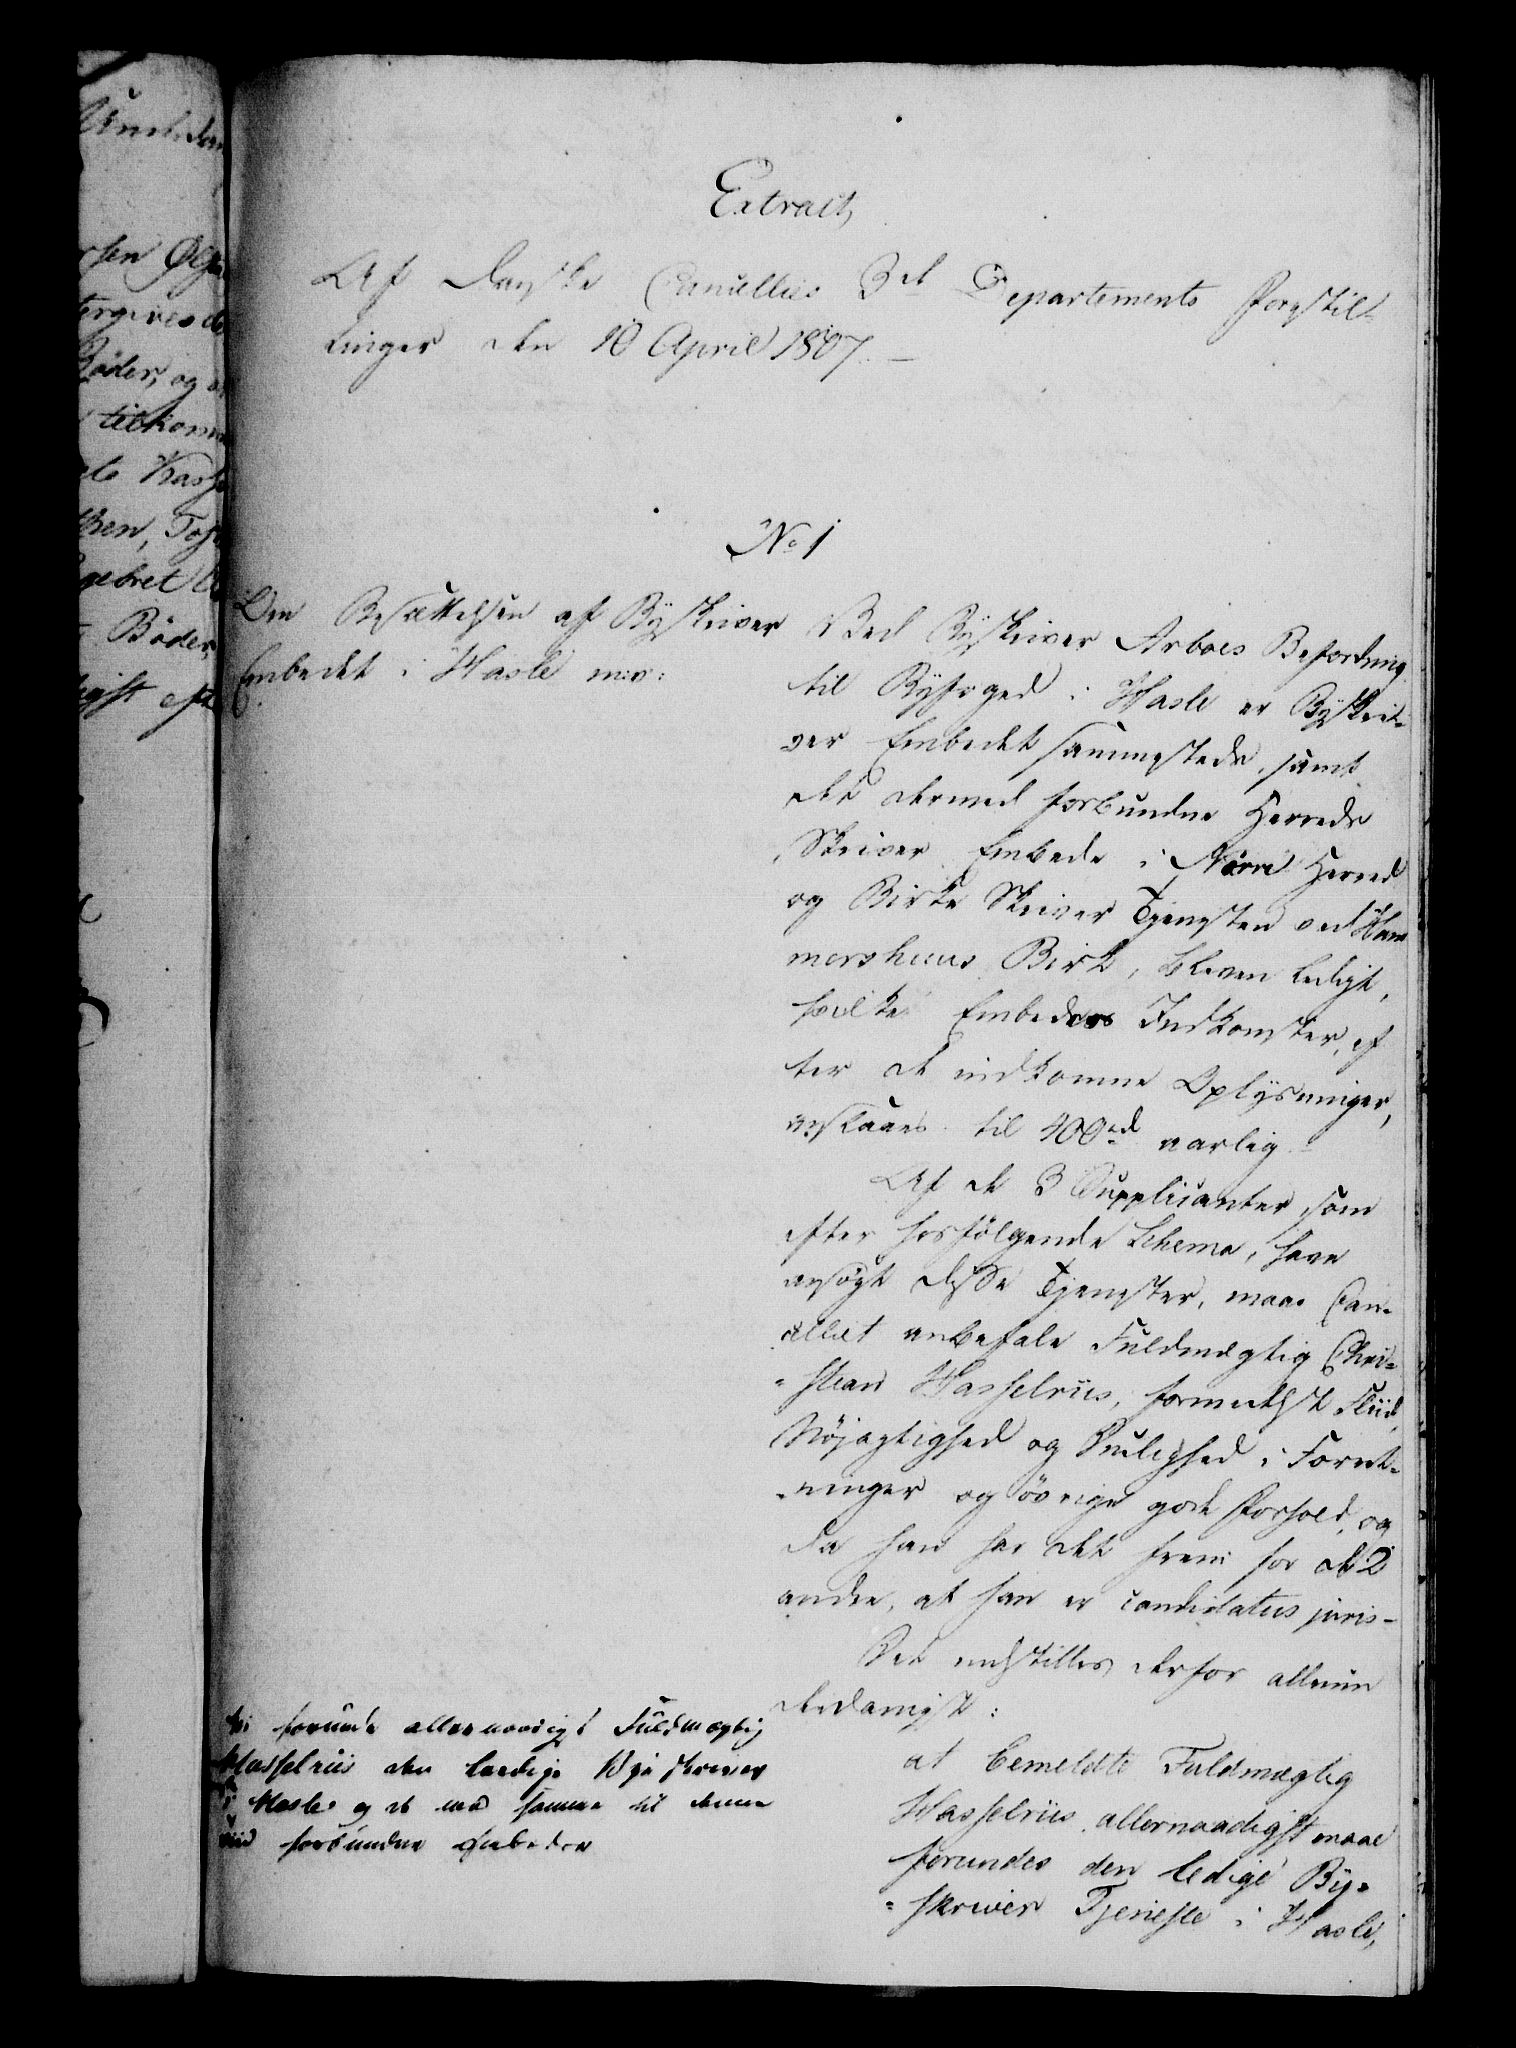 Extract,
Af Danske Cancellies 3die Departements Forestil-
linger den 10 April 1807. —
No 1
Om Besættelsen af Byskriver
Embedet i Hasle m.v.
Ved Byskriver Arboes Befordring
til Byfoged i Hasle er Byskri-
ver Embedet sammesteds, samt
det dermed forbundne Herreds
Skriver Embede i Nörre Herred
og Birke Skriver Tjenesten ved Ham
mershuus Birk, bleven ledigt,
hvilke Embeders Indkomster, ef
ter de indkomne Oplysninger,
anslaaes til 400rd aarlig.
Af de 3 Supplicanter, som
efter hosfölgende Schema, have
ansögt disse Tjenester, maae Can-
celliet anbefale Fuldmægtig Chri-
stian Hasselriis, formedelst Fliid,
Nöjagtighed og Duelighed i Forret-
ninger og övrige gode Forhold, og
da han har det frem for de 2
andre, at han er candidatus juris —
Det indstilles derfor allerun
derdanigst:
at bemeldte Fuldmægtig
Hasselriis allernaadigst maae
forundes den ledige By-
skriver Tjeneste i Hasle,
Vi forunde allernaadigst Fuldmægtig
Hasselriis den ledige Byeskriver
i Hasle og de med samme til denne
tiid forbundne Embeder